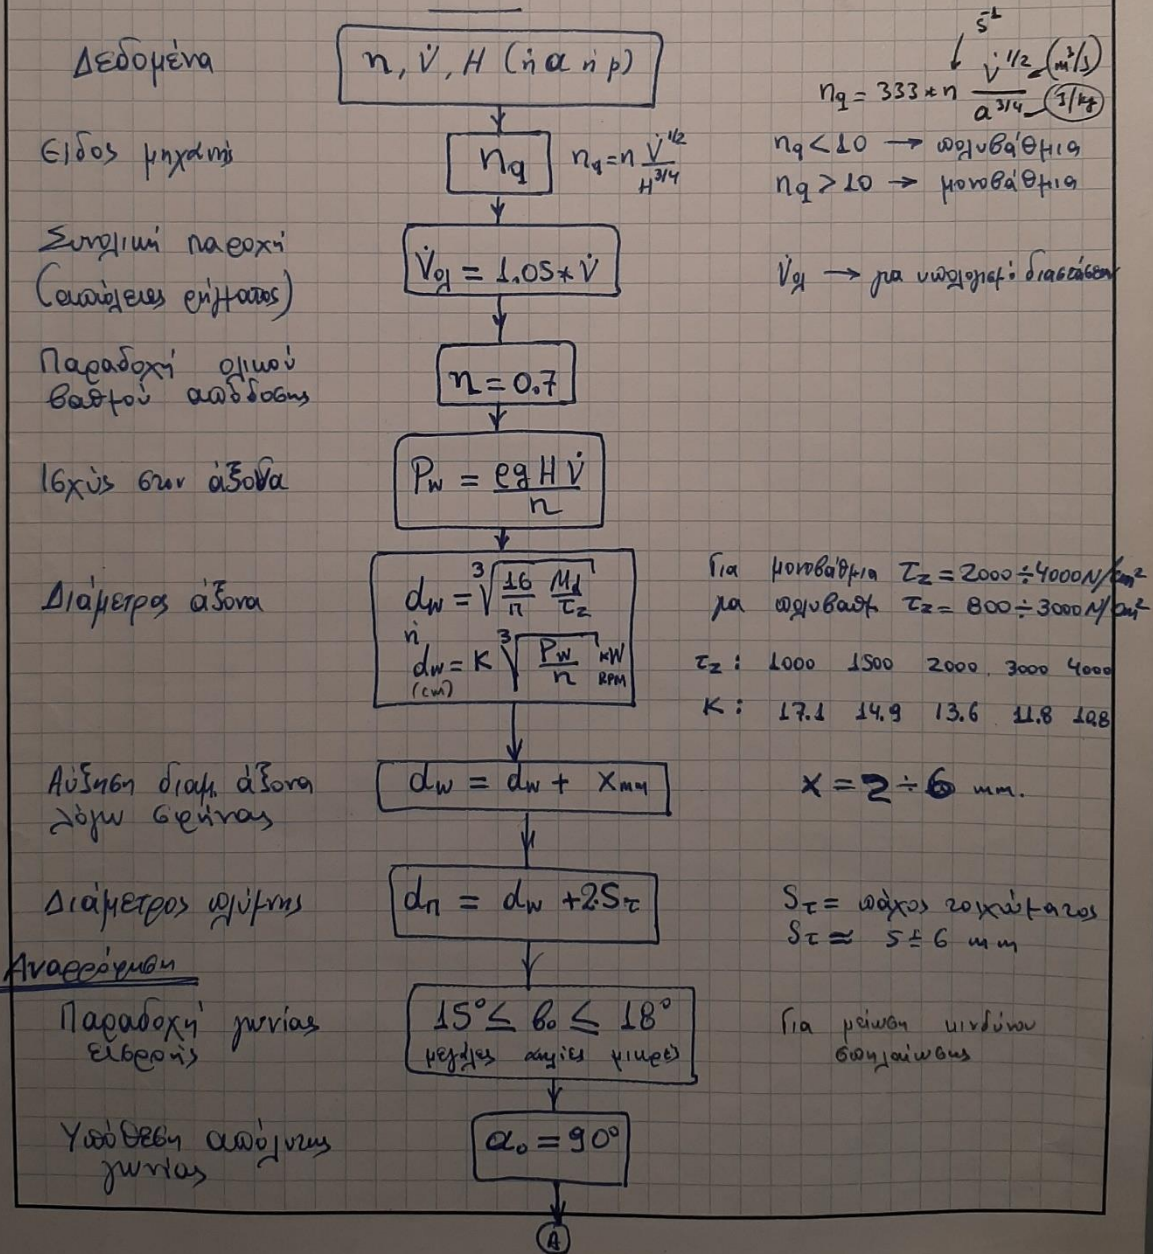 s⁻¹
Δεδομένα
n, V̇, H (ή a ή p)
n_q = 333 * n V̇^1/2 / a^3/4 (m³/s) (J/kg)
Είδος μηχανής
n_q
n_q = n V̇^1/2 / H^3/4
n_q < 10 → πολυβάθμια
n_q > 10 → μονοβάθμια
Συνολική παροχή
(απώλειες ρήγματος)
V̇ολ = 1.05 * V̇
V̇ολ → για υπολογισμ: διαστάσεων
Παραδοχή ολικού
βαθμού απόδοσης
n = 0.7
Ισχύς στον άξονα
P_w = ρ g H V̇ / n
Διάμετρος άξονα
d_w = ³√(16/π M_d/τ_z)
ή
d_w = K ³√(P_w/n) kW RPM
(cm)
Για μονοβάθμια τ_z = 2000 ÷ 4000 N/cm²
για πολυβαθμ. τ_z = 800 ÷ 3000 N/cm²
τ_z : 1000 1500 2000 3000 4000
K : 17.1 14.9 13.6 11.8 10.8
Αύξηση διαμ. άξονα
λόγω σφήνας
d_w = d_w + x mm
x = 2 ÷ 6 mm.
Διάμετρος πλύμνης
d_π = d_w + 2·S_τ
S_τ = πάχος τοιχώματος
S_τ ≈ 5 ÷ 6 mm
Αναρρόφηση
Παραδοχή γωνίας
εισροής
15° ≤ β₀ ≤ 18°
μεγάλες αντλίες μικρές
Για μείωση κινδύνου
σπηλαίωσης
Υπόθεση απόλυτης
γωνίας
α₀ = 90°
A